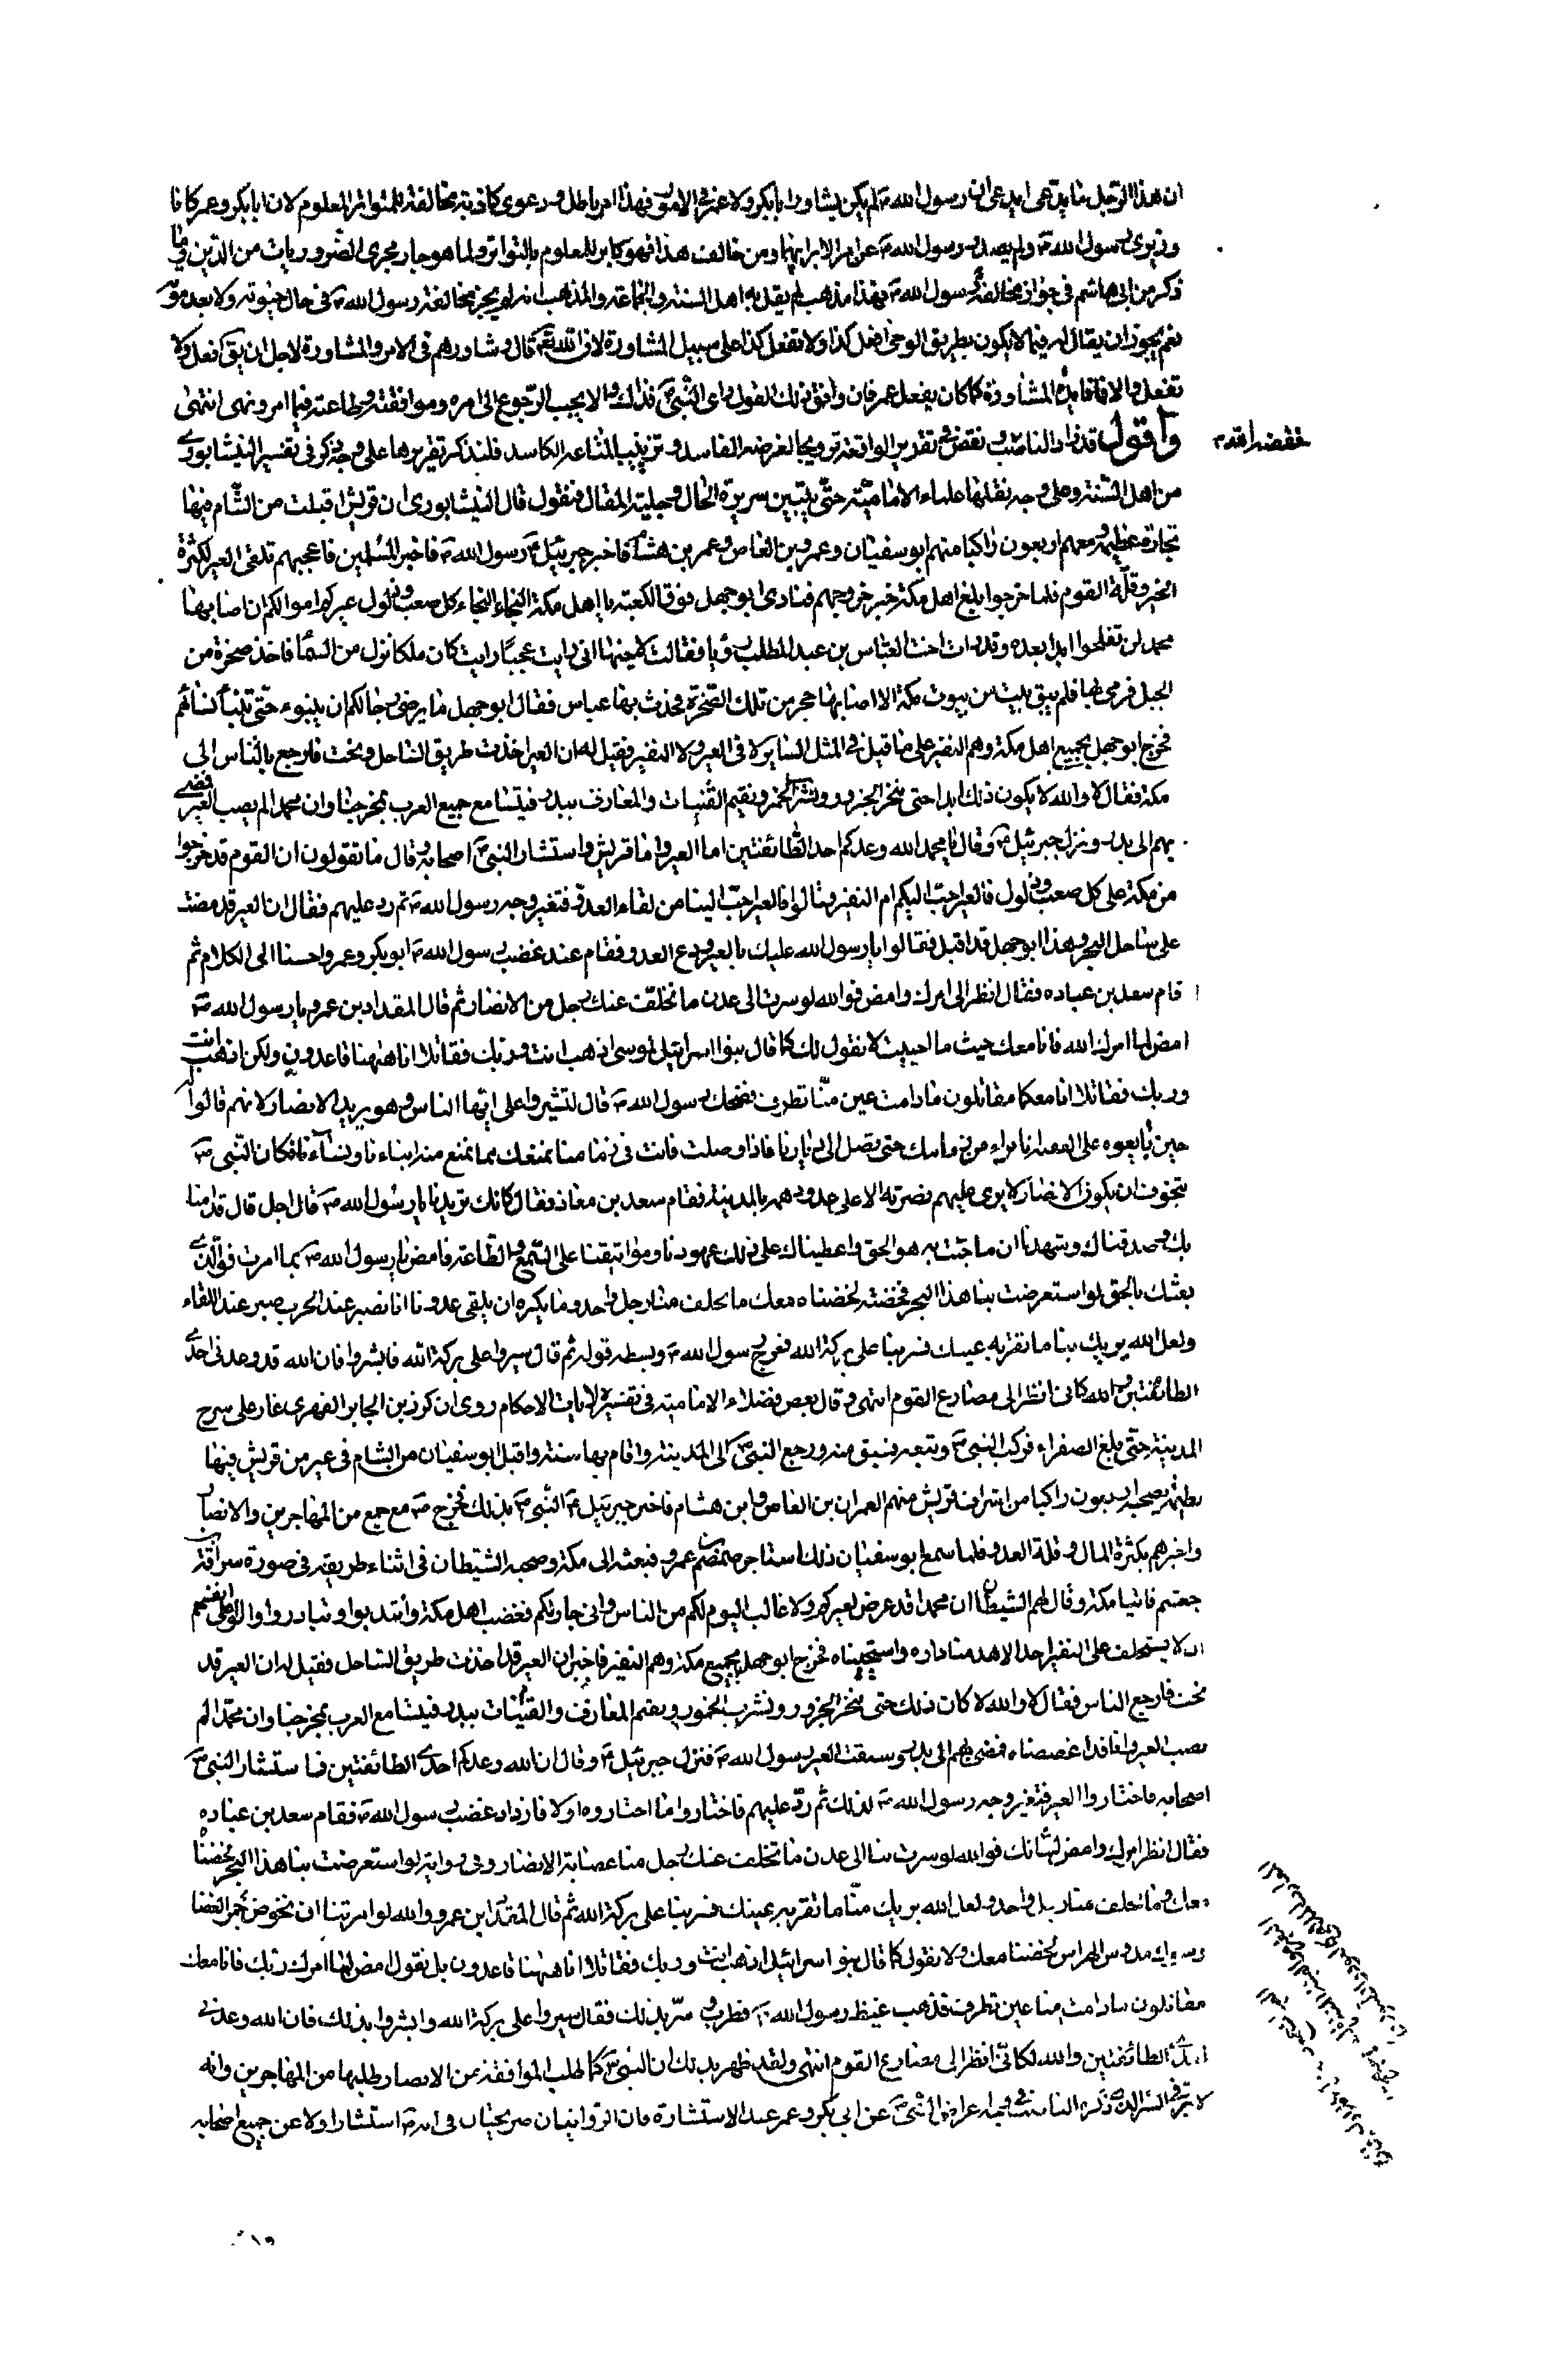 ان هذا الرجل ما يدعى ان رسول الله ص لم يكن يشاور ابابكر ولا عمر فى الامور فهذا امر باطل ودعوى كاذبة مخالفة للمتواتر المعلوم لان ابابكر وعمر كانا
وزيرى رسول الله ص ولم يصدر رسول الله ص عن امر الا برايهما ومن خالف هذا فهو مكابر للمعلوم بالتواتر ولما هو جار مجرى الضروريات من الدين وما
ذكر من ابى هاشم فى جواز مخالفة رسول الله ص فهذا مذهب لم يقل به اهل السنة والجماعة والمذهب انه لم يجز مخالفة رسول الله ص فى حال حيوته ولا بعد موته
نعم يجوز ان يقال له فيما لا يكون بطريق الوحى افعل كذا ولا تفعل كذا على سبيل المشاورة لان الله تعالى قال وشاورهم فى الامر والمشاورة لاجل ان يقال افعل ولا
تفعل والا فما فايدة المشاورة كما كان يفعل عمر فان وافق ذلك القول راى النبى ص فذلك والا يجب الرجوع الى امره وموافقته وطاعته فيما امر ونهى انتهى
واقول قد زاد الناصب ونقض فى تقدير الواقعة ترويجا لغرضه الفاسد وتزييب لمتاعه الكاسد فلنذكر تقريرها على وجه ذكر فى تفسير النيشابورى
من اهل السنة وعلى وجه نقلها علماء الامامية حتى يتبين سريرة الحال وجلية المقال فنقول قال النيشابورى ان قريش اقبلت من الشام فيها
تجارة عظيمة ومعهم اربعون راكبا منهم ابو سفيان وعمرو بن العاص وعمر بن هشام فاخبر جبرئيل ع رسول الله ص فاخبر المسلمين فاعجبهم تلقى العير لكثرة
الخير وقلة القوم فلما خرجوا بلغ اهل مكة خبر خروجهم فنادى ابو جهل فوق الكعبة يا اهل مكة النجاء النجاء كل صعب وذلول عيركم اموالكم ان اصابها
محمد لن تفلحوا ابدا بعده وقد رات اخت العباس بن عبد المطلب رؤيا فقالت لاخيها انى رايت عجبا رايت كان ملكا نزل من السماء فاخذ صخرة من
الجبل فرمى بها فلم يبق بيت من بيوت مكة الا اصابها حجر من تلك الصخرة فحدث بها عباس فقال ابو جهل ما يرضى رجالكم ان يتنبوء حتى تتنبأ نساؤهم
فخرج ابو جهل بجميع اهل مكة وهم النفير على ما قيل فى المثل الساير لا فى العير ولا النفير فقيل له ان العير اخذت طريق الساحل ونجت فارجع بالناس الى
مكة فقال لا والله لا يكون ذلك ابدا حتى ننحر الجزور ونشرب الخمر ونقيم القينات والمعازف ببدر فيتسامع جميع العرب بمخرجنا وان محمدا لم يصب العير فمضى
بهم الى بدر ونزل جبرئيل ع وقال يا محمد الله وعدكم احد الطائفتين اما العير واما قريش واستشار النبى ص اصحابه وقال ما تقولون ان القوم قد خرجوا
من مكة على كل صعب وذلول فالعير احب اليكم ام النفير وقالوا فالعير احب الينا من لقاء العدو فتغير وجه رسول الله ص ثم رد عليهم فقال ان العير قد مضت
على ساحل البحر وهذا ابو جهل قد اقبل فقالوا يا رسول الله عليك بالعير ودع العدو فقام عند غضب رسول الله ص ابو بكر وعمر واحسنا الى الكلام ثم
قام سعد بن عباده فقال انظر الى امرك وامض فوالله لو سرت الى عدن ما تخلف عنك رجل من الانصار ثم قال المقداد بن عمرو يا رسول الله ص
امض لما امرك الله فانا معك حيث ما احببت لا نقول لك كما قال بنوا اسرائيل لموسى اذهب انت وربك فقاتلا انا هيهنا قاعدون ولكن اذهب انت
وربك فقاتلا انا معكما مقاتلون ما دامت عين منا تطرف فضحك رسول الله ص قال لتشيروا على ايها الناس وهو يريد الانصار لانهم قالوا له
حين بايعوه على العقبة انا براء من ذمامك حتى تصل الى ديارنا فاذا وصلت فانت فى ذمامنا نمنعك مما نمنع منه ابناءنا ونساءنا فكان النبى ص
يتخوف ان يكون الانصار لا يرى عليهم نصرته الا على عدو دهمه بالمدينة فقام سعد بن معاذ فقال كانك تريدنا يا رسول الله ص قال اجل قال قد امنا
بك وصدقناك وشهدنا ان ما جئت به هو الحق واعطيناك على ذلك عهودنا ومواثيقنا على السمع والطاعة فامض يا رسول الله ص بما امرت فوالذى
بعثك بالحق لو استعرضت بنا هذا البحر فخضته لخضناه معك ما تخلف منا رجل واحد وما نكره ان يلقى عدونا انا نصبر عند الحرب صبر عند اللقاء
ولعل الله يريك بنا ما تقر به عينك فسر بنا على بركة الله ففرح رسول الله ص وبسطه قوله ثم قال سيروا على بركة الله فابشروا فان الله قد وعدنى احدى
الطائفتين والله كانى انظر الى مصارع القوم انتهى وقال بعض فضلاء الامامية فى تفسيره لايات الاحكام روى ان كرز بن الجابر الفهرى غار على سرح
المدينة حتى بلغ الصفراء فركب النبى ص وتبعه فسبق منه ورجع النبى ص الى المدينة واقام بها سنة واقبل ابو سفيان من الشام فى عير من قريش فيها
يصحبه اربعون راكبا من اشراف قريش منهم العمران بن العاص وابن هشام فاخبر جبرئيل ع النبى ص بذلك فخرج ص مع جمع من المهاجرين والانصار
واخبرهم بكثرة المال وقلة العدو فلما سمع ابو سفيان ذلك استاجر ضمضم بن عمرو فبعثه الى مكة وصحبه الشيطان فى اثناء طريقه فى صورة سراقة بن
جعشم فاتيا مكة وقال لهم الشيطان ان محمدا قد عرض لعيركم ولا غالب اليوم لكم من الناس وانى جار لكم فغضب اهل مكة وانتدبوا وتبادروا
لا يتخلف على النفير احد الا هدمنا داره واستبحناه فخرج ابو جهل بجميع مكة وهم النفير فاخبر ان العير قد اخذت طريق الساحل فقيل له ان العير قد
نجت فارجع الناس فقال لا والله لا كان ذلك حتى ننحر الجزور ونشرب الخمور ونقيم المعازف والقينات ببدر فيتسامع العرب بمخرجنا وان محمدا لم
يصب العير وانا قد اغصصناه فمضى بهم الى بدر وسبقت العير رسول الله ص فنزل جبرئيل ع وقال ان الله وعدكم احدى الطائفتين فاستشار النبى ص
اصحابه فاختاروا العير فتغير وجه رسول الله ص لذلك ثم رد عليهم فاختاروا ما اختاروه اولا فازداد غضب رسول الله ص فقام سعد بن عباده
فقال انظر امرك وامض لشانك فوالله لو سرت بنا الى عدن ما تخلف عنك رجل منا عصابة الانصار وفى رواية لو استعرضت بنا هذا البحر لخضنا
معك وما تخلف منا رجل واحد ولعل الله يريك منا ما تقر به عينك فسر بنا على بركة الله ثم قال المقداد بن عمرو والله لو امرتنا ان نخوض جمر الغضا
الهراس لخضنا معك ولا نقول كما قال بنو اسرائيل اذهب انت وربك فقاتلا انا هيهنا قاعدون بل نقول امض لما امرك ربك فانا معك
مقاتلون ما دامت منا عين تطرف فذهب غيظ رسول الله ص فطرب وسر بذلك فقال سيروا على بركة الله وابشروا بذلك فان الله وعدنى
احدى الطائفتين والله لكانى انظر الى مصارع القوم انتهى ولقد ظهر بذلك ان النبى ص كما طلب الموافقة من الانصار طلبها من المهاجرين وانه
ذكره الناصب فى وجه اعراض النبى ص عن ابى بكر وعمر عند الاستشارة فان الروايتان صريحتان فى انه ص استشار اولا عن جميع اصحابه